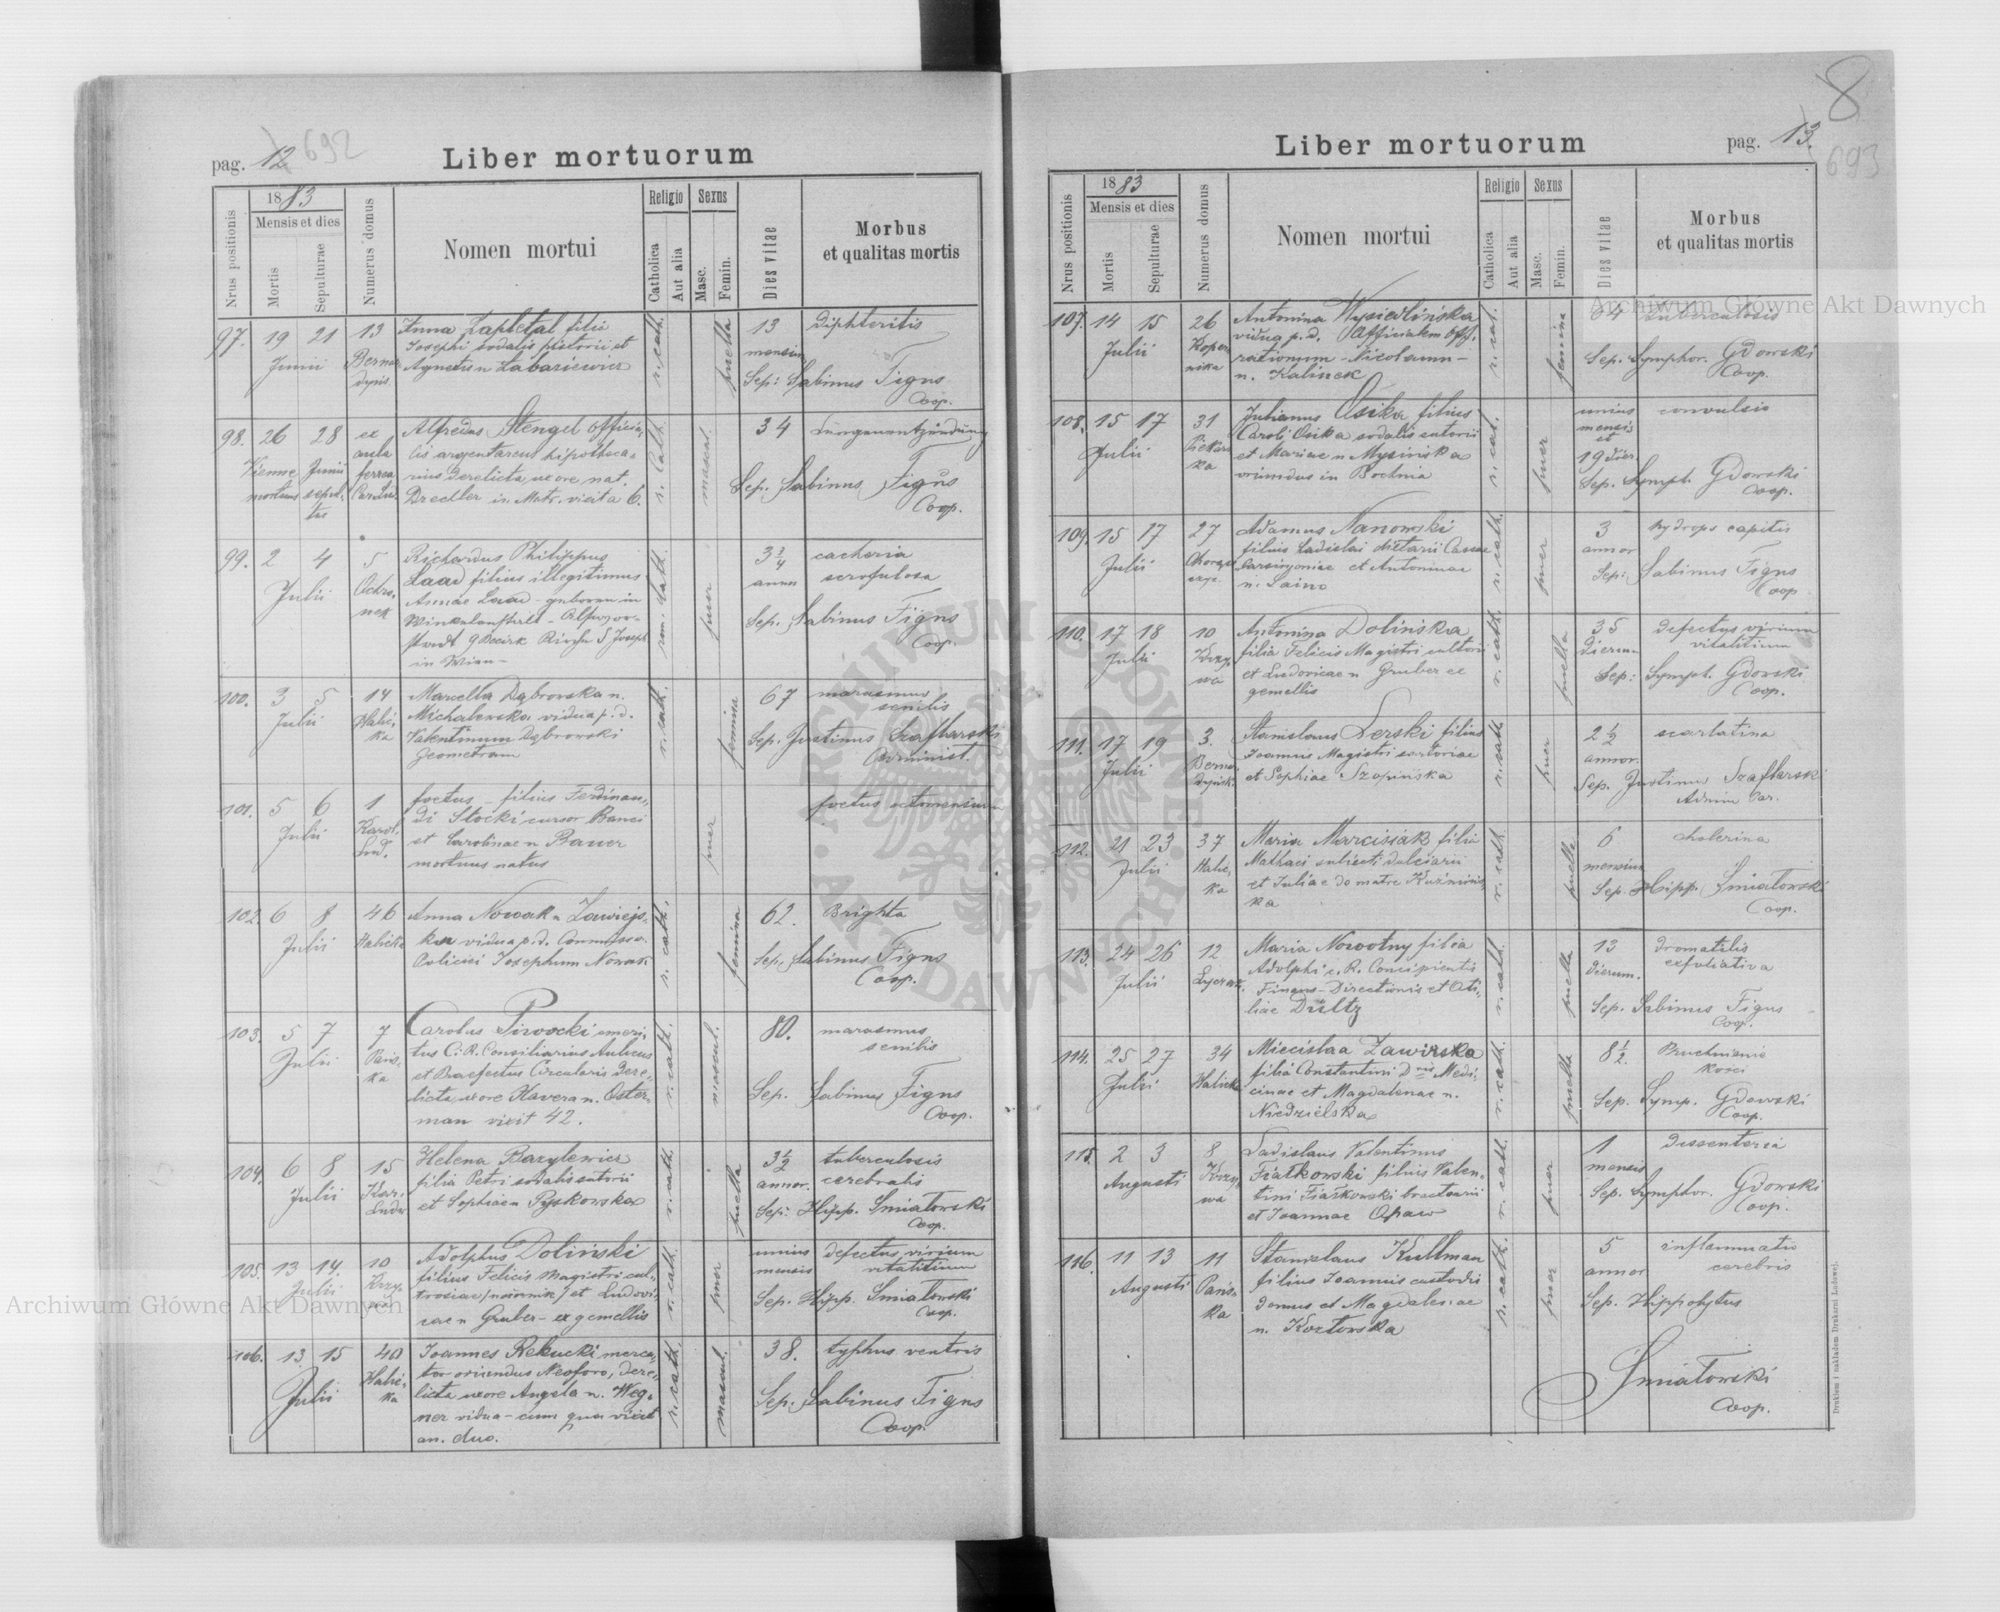 pag. 12 692
Liber mortuorum
Nrus positionis
1883
Mensis et dies
Mortis
Sepulturae
Numerus domus
Nomen mortui
Religio
Catholica
Aut alia
Sexus
Masc.
Femin.
Dies vitae
Morbus
et qualitas mortis
97. 19 21 13 Anna Zapletal filia r. cath. puella 13 diphteritis
Junii Josephi sodalis pistorii et mensium
Agnetis n Labaziewicz Sep: Sabinus Figus
Coop.
98. 26 28 ex Alfredus Stengel officia- r. cath. mascul. 34 Lungenentzündung
Vienne Junii aula lis argentareus hipotheca-
mortuus sepul- ferrea rius derelicta uxore nat. Sep. Sabinus Figus
tus Drechler in Matr. vixit a 6. Coop.
99. 2 4 5 Richardus Philippus rom. cath. puer 3 3/4 cachexia
Julii Ochro- Laad filius illegitimus annor scrofulosa
nek Annae Laad - geboren in
in Wien - Sep. Sabinus Figus
Coop.
100. 3 5 14 Marcella Dąbrowska n. r. cath. femina 67 marasmus
Julii Halic- Michalewska vidua p. d. senilis
ka Valentinum Dąbrowski Sep. Justinus Szaflarski
Geometram Administ.
101. 5 6 1 foetus - filius Ferdinan- puer foetus octomensium
Julii Karol. di Słocki cursor Banci
Lud. et Carolinae n Bauer
mortuus natus
102. 6 8 46 Anna Nowak n Zawiejs- r. cath. femina 62. Brighta
Julii Halicka ka vidua p. d. Commissa.
Policiei Josephum Nowak Sep. Sabinus Figus
Coop.
103. 5 7 7 Carolus Piwocki emeri- r. cath. mascul. 80. marasmus
Julii Pańs- tus C. R. Consiliarius Aulicus senilis
ka et Praefectus Circularis dere-
licta uxore Xavera n. Oster- Sep. Sabinus Figus
man vixit 42. Coop.
104. 6 8 15 Helena Bazylewicz r. cath. puella 3 1/2 tuberculosis
Julii Kar. filia Petri sodalis sutorii annor. cerebralis
Ludw et Sophiae n Pyskowska Sep: Hipp. Śmiatowski
Coop.
105. 13 14. 10 Adolphus Doliński r. cath. puer unius defectus virium
Julii filius Felicis magistri cul- mensis vitalitium
et Ludovi- Sep. Hipp. Śmiatowski
cae n Gruber - ex gemellis Coop.
106. 13 15 40 Joannes Rekucki merca- r. cath. mascul. 38. typhus ventris
Julii Halic- tor oriundus Neoforo, dere-
ka licta uxore Angela n. Weg- Sep. Sabinus Figus
ner vidua - cum qua vixit Coop.
an. duo.
8
pag. 13. 693
Liber mortuorum
Nrus positionis
1883
Mensis et dies
Mortis
Sepulturae
Numerus domus
Nomen mortui
Religio
Catholica
Aut alia
Sexus
Masc.
Femin.
Dies vitae
Morbus
et qualitas mortis
107. 14 15 26 Antonina Wysiedlińska r. cat. femina 64 tuberculosis
Julii Koper- vidua p. d. Officialem off.
nika rationum - Nicolaum - Sep. Symphor. Gdowski
n. Kalinek Coop.
108. 15 17 31 Julianus Osika filius r. cat. puer unius convulsio
Julii Piekars- Caroli Osika sodalis sutorii mensis et
ka et Mariae n Mysińska 19 dier.
oriundus in Bochnia Sep. Symph. Gdowski
Coop.
109. 15 17 27 Adamus Nanowski r. cath. puer 3 hydrops capitis
Julii filius Ladislai dietarii Cassae annor
et Antoninae Sep: Sabinus Figus
n. Saino Coop
110. 17 18 10 Antonina Dolińska r. cath. puella 35 defectus virium
Julii Krzy- filia Felicis Magistri cultrorii dierum vitalitium
wa et Ludovicae n Gruber ex Sep: Symph. Gdowski
gemellis Coop.
111. 17 19 3. Stanislaus Lerski filius r. cath puer 2 1/2 scarlatina
Julii Bernar- Joannis Magistri sartoriae annor.
dyńsk. et Sophiae Szopińska Sep. Justinus Szaflarski
Admin Par.
112. 21 23 37 Maria Marcisiak filia r. cath. puella 6 cholerina
Julii Halic- Mathaei subiecti dulciarii mensium
ka et Juliae de matre Kuźmińs- Sep. Hipp. Śmiatowski
ka Coop.
113. 24 26 12 Maria Nowotny filia r. cath. puella 13 dromatilis
Julii Adolphi c. R. Concipientis dierum. exfoliativa
Finans-Directionis et Oti-
liae Dültz Sep. Sabinus Figus
Coop.
114. 25 27 34 Miecislaa Zawirska r. cath. puella 8 1/2. Pruchnienie
Julii Halicka filia Constantini Dris Medi- kości
cinae et Magdalenae n. Sep. Symp. Gdowski
Niedzielska Coop.
115. 2 3 8 Ladislaus Valentinus r. cath. puer 1 dissenteria
Augusti Krzy- Fiałkowski filius Valen- mensis
wa tini Fiałkowski Sep. Symphor. Gdowski
et Joannae Opaw Coop.
116. 11 13 11 Stanislaus Kullman r. cath. puer 5 inflammatio
Augusti Pańs- filius Joannis custodis annor cerebris
ka domus et Magdalenae Sep. Hippolytus
n. Koztowska
Śmiatowski
Coop.
Drukiem i nakładem Drukarni Ludowej.
Archiwum Główne Akt Dawnych
Archiwum Główne Akt Dawnych
ARCHIWUM GŁÓWNE AKT DAWNYCH